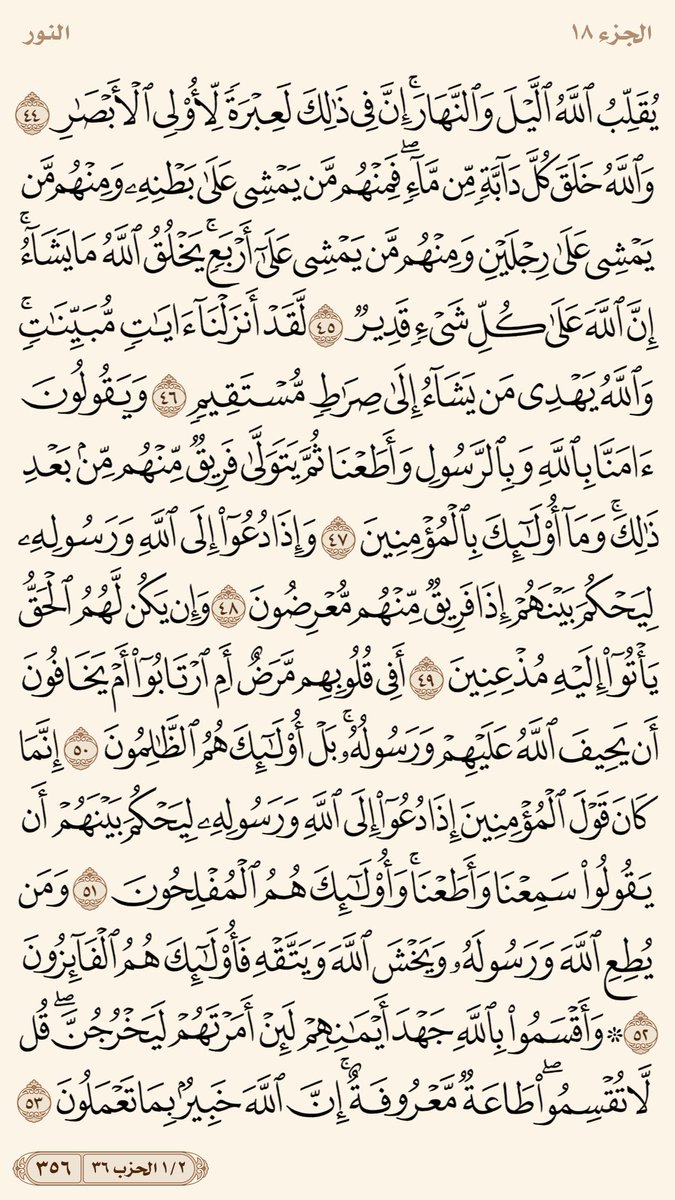 الجزء ١٨ النور
يُقَلِّبُ ٱللَّهُ ٱلَّيۡلَ وَٱلنَّهَارَۚ إِنَّ فِي ذَٰلِكَ لَعِبۡرَةٗ لِّأُوْلِي ٱلۡأَبۡصَٰرِ ٤٤
وَٱللَّهُ خَلَقَ كُلَّ دَآبَّةٖ مِّن مَّآءٖۖ فَمِنۡهُم مَّن يَمۡشِي عَلَىٰ بَطۡنِهِۦ وَمِنۡهُم مَّن
يَمۡشِي عَلَىٰ رِجۡلَيۡنِ وَمِنۡهُم مَّن يَمۡشِي عَلَىٰٓ أَرۡبَعٖۚ يَخۡلُقُ ٱللَّهُ مَا يَشَآءُۚ
إِنَّ ٱللَّهَ عَلَىٰ كُلِّ شَيۡءٖ قَدِيرٞ ٤٥ لَّقَدۡ أَنزَلۡنَآ ءَايَٰتٖ مُّبَيِّنَٰتٖۚ
وَٱللَّهُ يَهۡدِي مَن يَشَآءُ إِلَىٰ صِرَٰطٖ مُّسۡتَقِيمٖ ٤٦ وَيَقُولُونَ
ءَامَنَّا بِٱللَّهِ وَبِٱلرَّسُولِ وَأَطَعۡنَا ثُمَّ يَتَوَلَّىٰ فَرِيقٞ مِّنۡهُم مِّنۢ بَعۡدِ
ذَٰلِكَۚ وَمَآ أُوْلَٰٓئِكَ بِٱلۡمُؤۡمِنِينَ ٤٧ وَإِذَا دُعُوٓاْ إِلَى ٱللَّهِ وَرَسُولِهِۦ
لِيَحۡكُمَ بَيۡنَهُمۡ إِذَا فَرِيقٞ مِّنۡهُم مُّعۡرِضُونَ ٤٨ وَإِن يَكُن لَّهُمُ ٱلۡحَقُّ
يَأۡتُوٓاْ إِلَيۡهِ مُذۡعِنِينَ ٤٩ أَفِي قُلُوبِهِم مَّرَضٌ أَمِ ٱرۡتَابُوٓاْ أَمۡ يَخَافُونَ
أَن يَحِيفَ ٱللَّهُ عَلَيۡهِمۡ وَرَسُولُهُۥۚ بَلۡ أُوْلَٰٓئِكَ هُمُ ٱلظَّٰلِمُونَ ٥٠ إِنَّمَا
كَانَ قَوۡلَ ٱلۡمُؤۡمِنِينَ إِذَا دُعُوٓاْ إِلَى ٱللَّهِ وَرَسُولِهِۦ لِيَحۡكُمَ بَيۡنَهُمۡ أَن
يَقُولُواْ سَمِعۡنَا وَأَطَعۡنَاۚ وَأُوْلَٰٓئِكَ هُمُ ٱلۡمُفۡلِحُونَ ٥١ وَمَن
يُطِعِ ٱللَّهَ وَرَسُولَهُۥ وَيَخۡشَ ٱللَّهَ وَيَتَّقۡهِ فَأُوْلَٰٓئِكَ هُمُ ٱلۡفَآئِزُونَ
٥٢ ۞ وَأَقۡسَمُواْ بِٱللَّهِ جَهۡدَ أَيۡمَٰنِهِمۡ لَئِنۡ أَمَرۡتَهُمۡ لَيَخۡرُجُنَّۖ قُل
لَّا تُقۡسِمُواْۖ طَاعَةٞ مَّعۡرُوفَةٌۚ إِنَّ ٱللَّهَ خَبِيرُۢ بِمَا تَعۡمَلُونَ ٥٣
١/٢ الحزب ٣٦ ٣٥٦